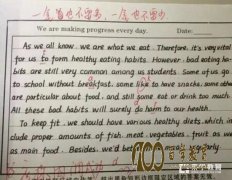 一笔也不要多,一笔也不要少
We are making progress every day. Date:
As we all know, we are what we eat. Therefore, it's very vital
for us to form healthy eating habits. However, bad eating ha-
bits are still very common among us students. Some of us go
to school without breakfast, some like to have snacks, some others
are particular about food, and still some eat or drink too much.
All these bad habits will surely do harm to our health.
To keep fit, we should have various healthy diets, which in-
clude proper amounts of fish, meat, vegetables, fruit as we
as main food. Besides, we'd better meals regularly.
100